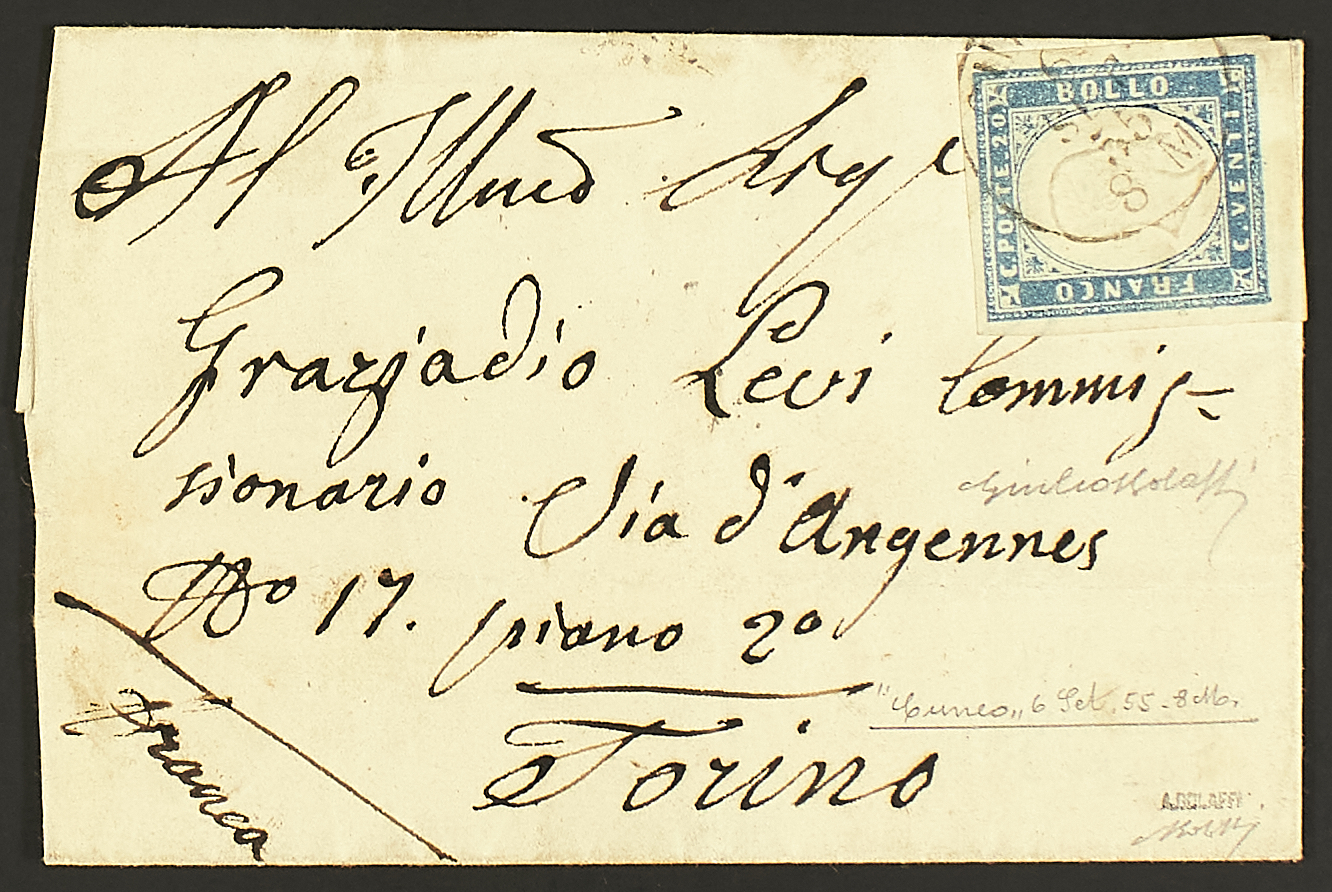 Al Illmo Sigr
Grazjadio Levi Commis-
sionario Via d'Angennes
No 17. piano 2o
Torino
franca
C. POSTE 20
BOLLO
C. VENTI
FRANCO
6
SET 55
8 M
Giulio Bolaffi
"Cuneo" 6 Set. 55 - 8 M.
A. BOLAFFI